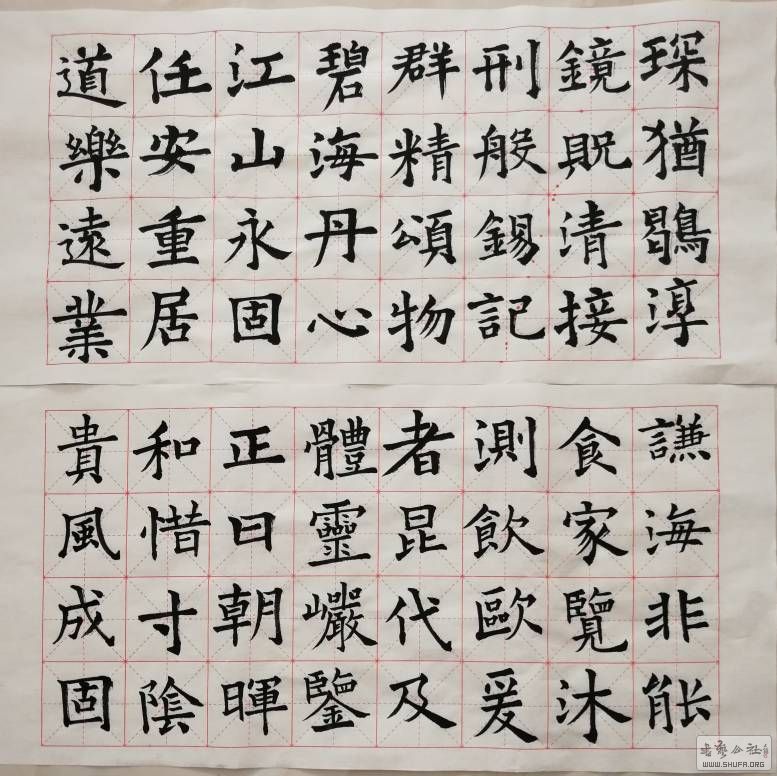 琛猶鶡淳
鏡貺清接
刑般錫記
群精頌物
碧海丹心
江山永固
任安重居
道樂遠業
謙海非能
食家覽沐
測飲歐爰
者昆代及
體靈巖鑒
正日朝暉
和惜寸陰
貴風成固
WWW.SHUFA.ORG